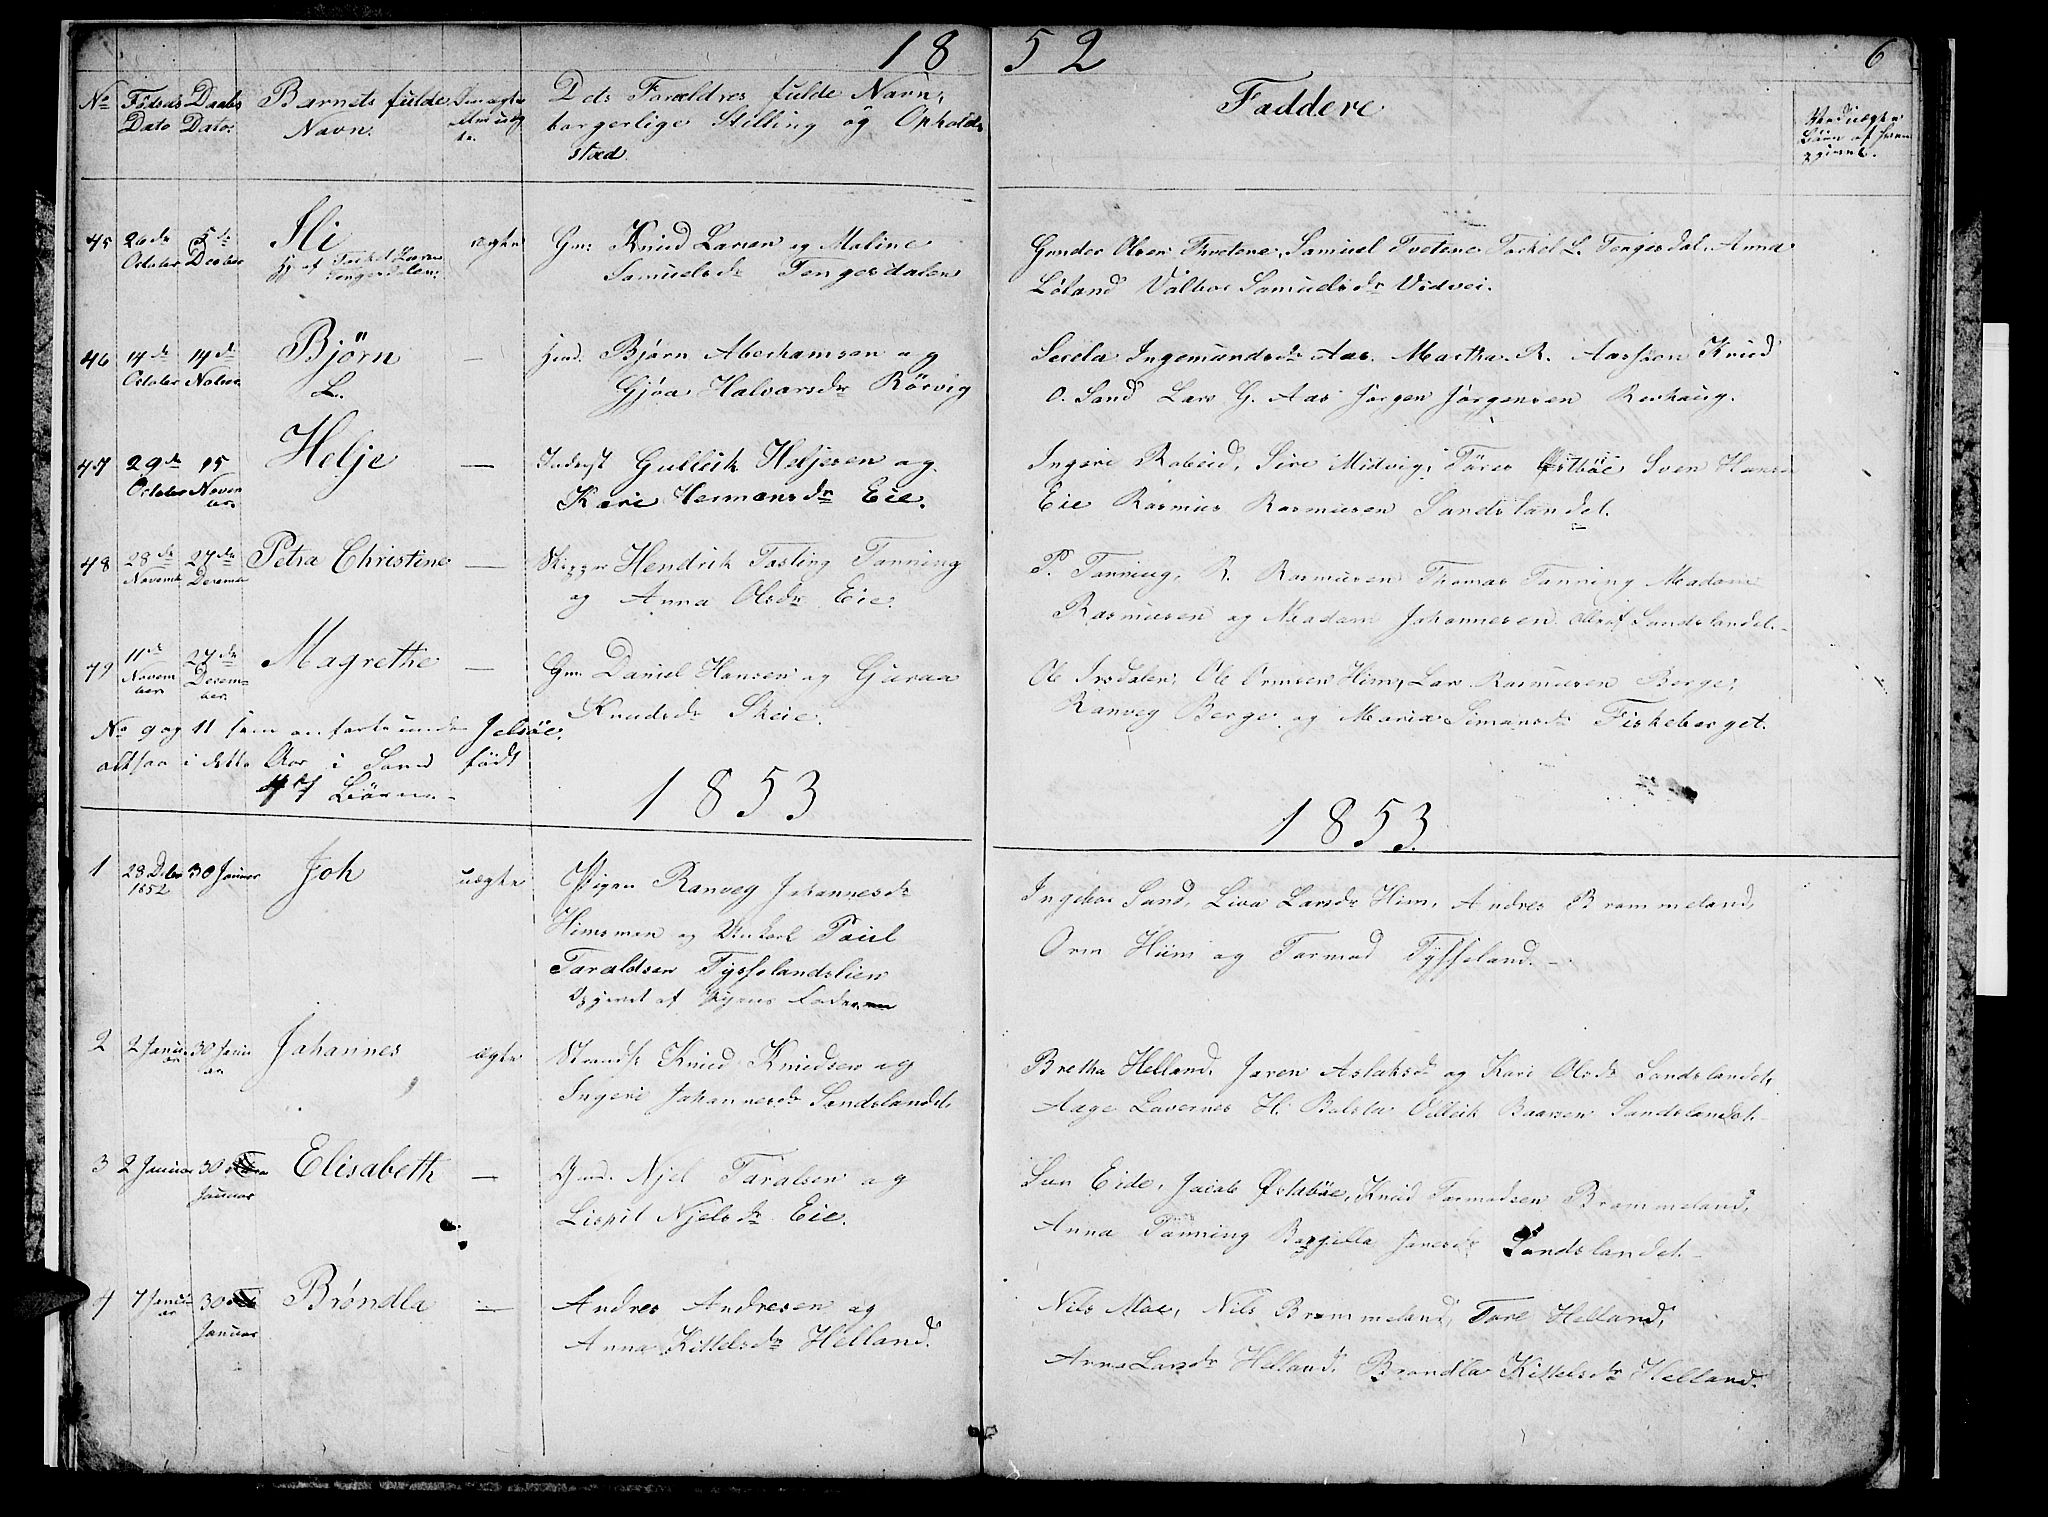 18 52 6
No Fødsels Dato Daabs Dato: Barnets fulde Navn. Om ægte eller uægte. Dets Forældres fulde Navn, borgerlige Stilling og Opholdssted.
Faddere
Ved uægte Børn af hvem
45 26de October 5te Decber Ili ægte Gm: Knud Larsen og Maline
Hj. af Torkel Larsen Tengesdalen. Samuelsdr Tengesdalen
Gunder Olsen Tvetene, Samuel Tvetene Torkel L. Tengesdal. Anna
Løland Valbor Samuelsdr Vidvei.
46 14de October 14de Novbr Bjørn L. — Hmd. Bjørn Aberhamsen og
Gjøa Halvarsdr Rørvig
Serela Ingemundsdr Aas. Martha R. Knud
O. Sand Lars G. Aas Jørgen Jørgensen Revhaug.
47 29de October 15 November Helje — Inderst Gulleik Heljesen og
Kari Hermansdr Eie.
Ingeri Røbeid, Siri Midvig, Tører Østbøe Sven Hans
Eie Rasmus Rasmusen Sandslandet.
48 28de Novemb 27de Decemb Petra Christine — Skipper Hendrik Tasling Tanning
og Anna Olsdr Eie.
P. Tanning, R. Rasmusen Thomas Tanning Madam
Rasmusen og Madam Johannesen. Alle af Sandslandet.
49 11de November 27de December. Magrethe — Gm. Daniel Hansen og Guroa
Knudsdr Skeie.
Ole Irsdalen, Ole Ormsen Him, Lars Rasmusen Berge,
Ranveg Berge og Maria Simonsdr Fiskeberget.
No 9 og 11 ere anførte under Jelsøe.
altsaa i dette Aar i Sand født
47 Børn.
1853 1853.
1 28 Decbr 1852 30 Januar Joh uægte Pigen Ranveg Johannesdr
Himsmoen og Unkarl Poul
Taraldsen Tysselandslien
Opgivet af Pigens Fader
Ingebor Sand, Liva Larsdr Him, Andres Brommeland,
Orm Hiim og Tormod Tysseland.—
2 2 Januar 30 Januar Johannes ægte Strands. Knud Knudsen og
Ingeri Johannesdr Sandslandet
Bretha Helland, Joren Aslaksdr og Kari Olsdr Sandslandet,
Aage Lavernes H. Bolsta Velleik Baarsen Sandslandet.
3 2 Januar 30 Januar Elisabeth — Hmd. Njel Taralsen og
Lispit Njelsdr Eie.
Svn Eide, Jacob Østebøe, Knud Tormodsen Brommeland,
Anna Tanning Bagjella Jonesdr Sandslandet.
4 7 Januar 30 Januar Brøndla — Andres Andresen og
Anna Kittelsdr Helland.
Nils Moe, Nils Brommeland, Tore Helland,
Anna Larsdr Helland. Brondla Kittelsdr Helland.